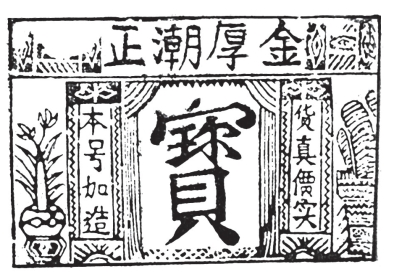 金厚潮正
貨真價实
寳
本号加造